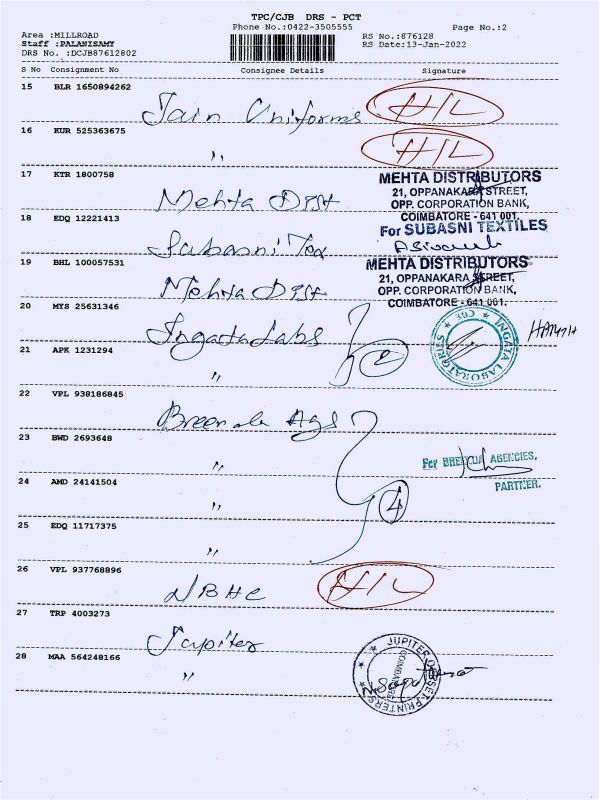 TPC/CJB DRS - PCT
Phone No.:0422-3505555
Page No.:2
Area :MILLROAD
RS No.:876128
Staff :PALANISAMY
RS Date:13-Jan-2022
DRS No. :DCJB87612802
S No Consignment No Consignee Details Signature
15 BLR 1650894262
Jain Uniforms H/L
16 KUR 525363675
〃 H/L
17 KTR 1800758
MEHTA DISTRIBUTORS
21, OPPANAKARA STREET,
OPP. CORPORATION BANK,
COIMBATORE - 641 001.
Mehta Dist
18 EDQ 12221413
For SUBASNI TEXTILES
Subasni Tex
19 BHL 100057531
MEHTA DISTRIBUTORS
21, OPPANAKARA STREET,
OPP. CORPORATION BANK,
COIMBATORE - 641 001.
Mehta Dist
20 MYS 25631346
Ingata Labs
INGATA LABORATORIES
CBE
21 APK 1231294
〃 2
22 VPL 938186845
Ags
23 BWD 2693648
〃
For AGENCIES,
PARTNER.
24 AMD 24141504
〃 4
25 EDQ 11717375
〃
26 VPL 937768896
NBHC H/L
27 TRP 4003273
Jupiter
JUPITER OFFSET PRINTERS
COIMBATORE
28 MAA 564248166
〃